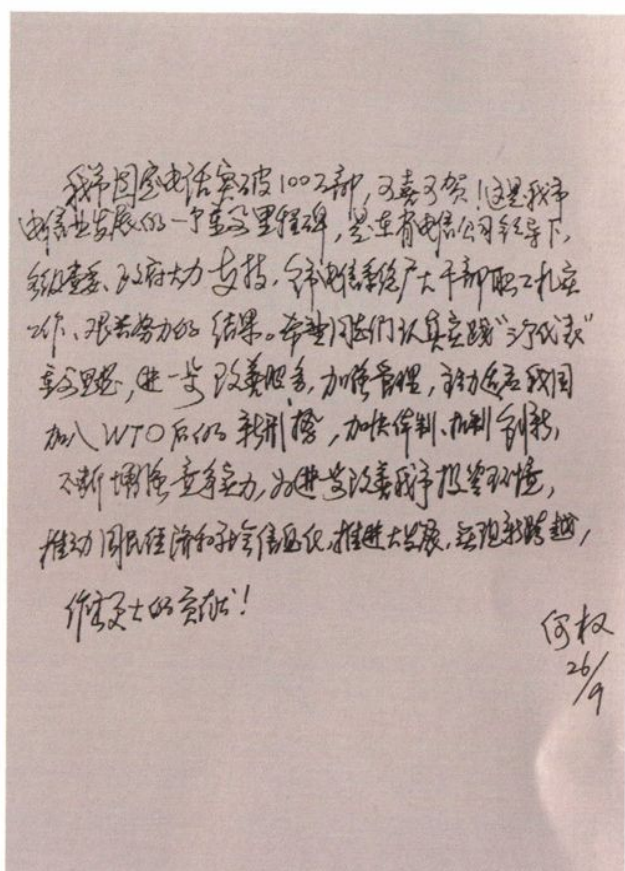 我市固定电话突破100万部,可喜可贺!这是我市
电信业发展的一个重要里程碑,是在省电信公司领导下,
各级党委、政府大力支持,全市电信系统广大干部职工扎实
工作、艰苦努力的结果。希望同志们认真实践“三个代表”
重要思想,进一步改善服务,加强管理,主动适应我国
加入WTO后的新形势,加快体制、机制创新,
不断增强竞争实力,为进一步改善我市投资环境,
推动国民经济和社会信息化,推进大发展,实现新跨越,
作出更大的贡献!
何权
26/9